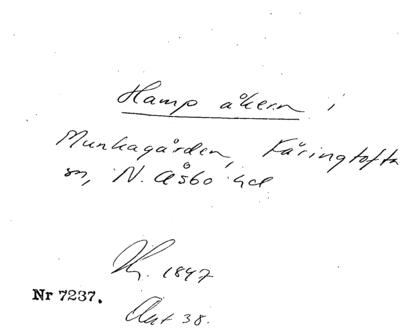 Hamp åkern i
Munkagården, Färingtofta
sn, N. Åsbo hd
1847
Nr 7237.
Akt 38.